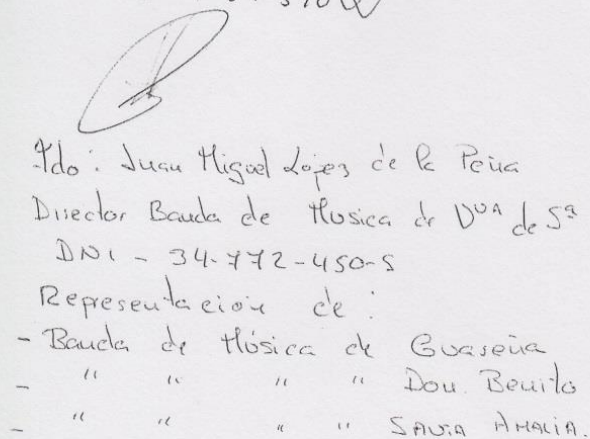 Fdo: Juan Miguel López de la Peña
Director Banda de Música de Vva de Sª
DNI - 34-772-450-S
Representacion de:
- Banda de Música de Guareña
- " " " " Don Benito
- " " " " SANTA AMALIA.